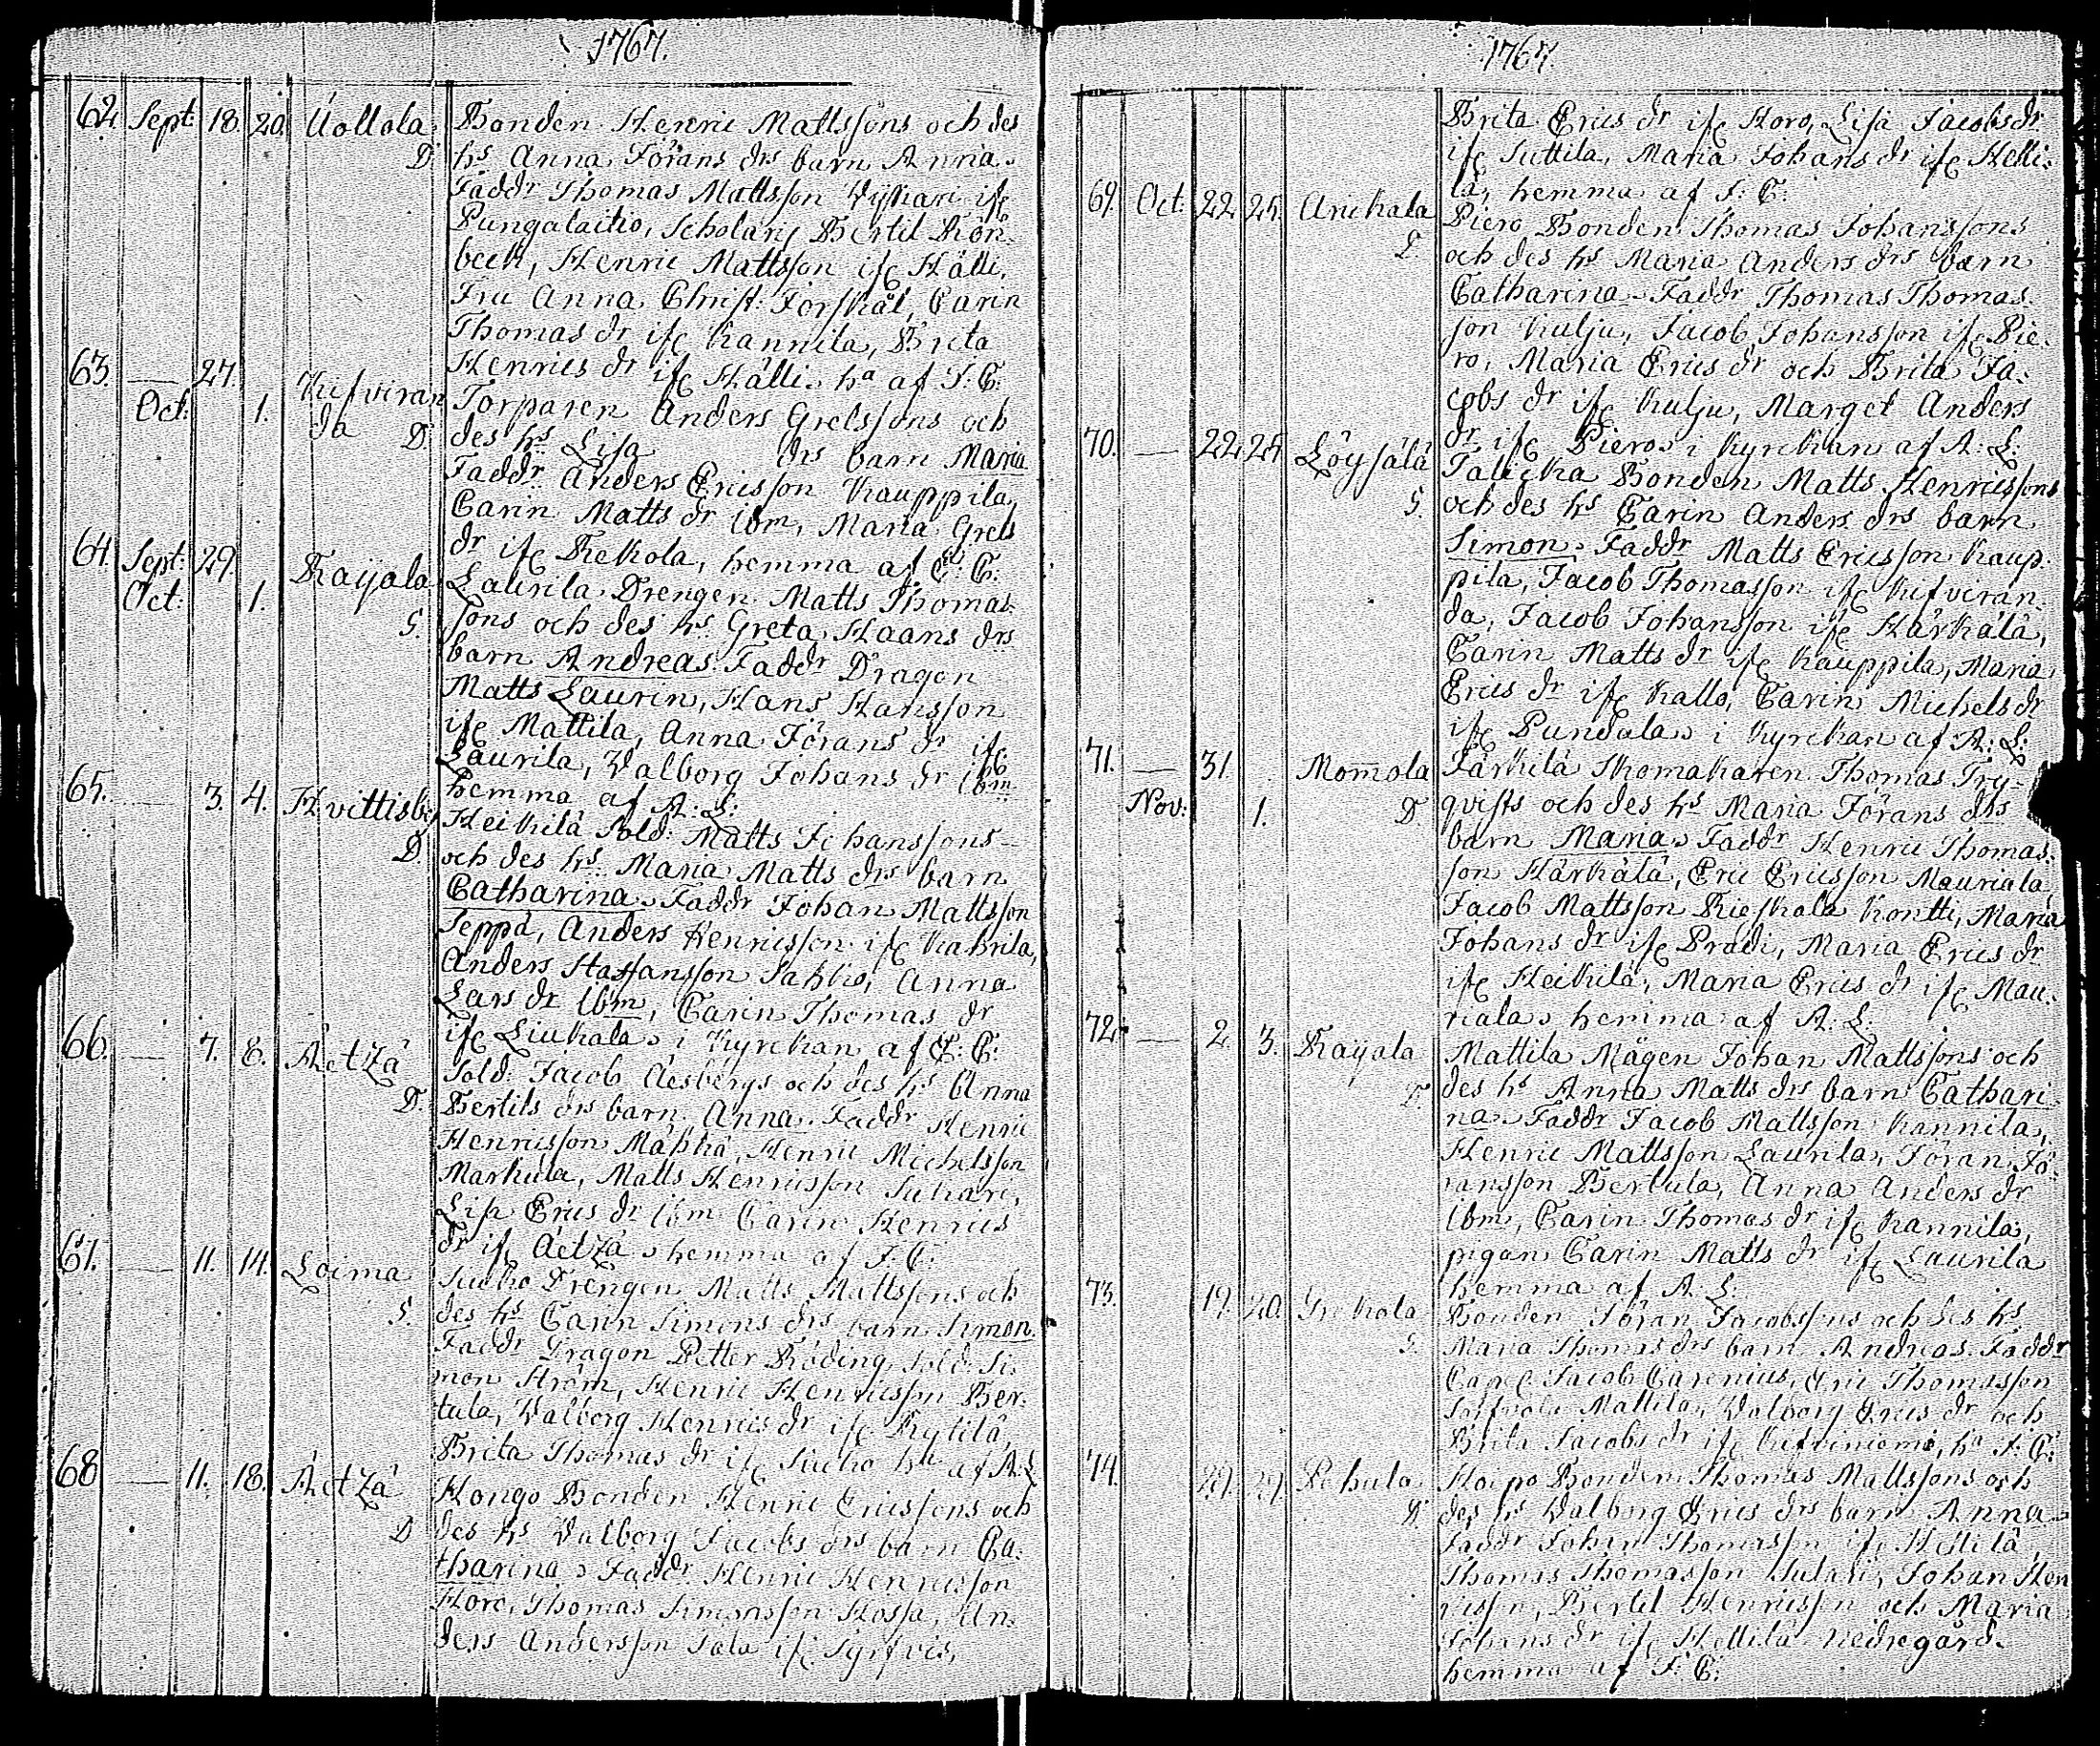 1767.
62. Sept. 18. 20. Uottola Bonden Henric Mattssons och des
D. hs Anna Jörans drs barn Anna.
Faddr Thomas Mattsson if
Pungalaitio, Scholaris Bertil Rön-
beck, Henric Mattsson if Hälli,
Fru Anna Christ: Forskål, Carin
Thomas dr if Kannila, Brita
Henrics dr if Hälli. ha af J: C:
63. — 27. Kifviran Torparen Anders Grelssons och
Oct: 1. da D. des hs Lisa drs barn Maria
Faddr Anders Ericsson Kauppila,
Carin Matts dr ibm, Maria Grels
dr if Rekola, hemma af C: C:
64. Sept: 29. Raijala Laurila Drengen Matts Thomas-
Oct: 1. G. sons och des hs Greta Haans drs
barn Andreas. Faddr Dragon
Matts Laurin, Hans Hansson
if Mattila, Anna Jörans dr if
Laurila, Walborg Johans dr ibm
hemma af A: L:
65. — 3. 4. Hvittisby Heikilä Sold: Matts Johanssons
D. och des hs Maria Matts drs barn
Catharina. Faddr Johan Mattsson
Seppä, Anders Henricsson if Kahrila,
Anders Staffansson Sahko, Anna
Lars dr ibm, Carin Thomas dr
if Liukala. i Kyrckan af J: C:
66. — 7. 8. Äetzä Sold: Jacob Äesbergs och des hs Anna
D. Bertils drs barn Anna. Faddr Henric
Henricsson Mäskä, Henric Michelsson
Markula, Matts Henricsson Suhari,
Lisa Erics dr ibm Carin Henrics
dr if Äetzä. hemma af J: C:
67. — 11. 14. Loima Sucko Drengen Matts Mattssons och
G. des hs Carin Simons drs barn Simon.
Faddr Dragon Petter Röding, Sold: Si-
mon Ström, Henric Henricsson Ber-
tula, Walborg Henrics dr if Rytilä,
Brita Thomas dr if Sucko ha af A: L:
68 — 11. 18. Äetzä Hongo Bonden Henric Ericssons och
D des hs Walborg Jacobs drs barn Ca-
tharina. Faddr Henric Henricsson
Horo, Thomas Simonsson Hossa, An-
ders Andersson Sala if Tyrfvis,
1767.
Brita Erics dr if Horo, Lisa Jacobs dr
if Suttila, Maria Johans dr if Helli-
lä, hemma af J: C:
69. Oct: 22 25. Anickala Piero Bonden Thomas Johanssons
D. och des hs Maria Anders drs barn
Catharina. Faddr Thomas Thomas-
son Kulju, Jacob Johansson if Pie-
ro, Maria Erics dr och Brita Ja-
cobs dr if Kulju, Marget Anders
dr if Piero. i Kyrckan af A: L:
70. — 22 25 Löysälä Talicka Bonden Matts Henricssons
G. och des hs Carin Anders drs barn
Simon. Faddr Matts Ericsson Kaup-
pila, Jacob Thomasson if Kifviran-
da, Jacob Johansson if Härkälä,
Carin Matts dr if Kauppila, Maria
Erics dr if Kallo, Carin Michels dr
if Pundala. i Kyrckan af A: L:
71. — 31. Mom̄ola Järkilä Skomakaren Thomas Try-
Nov: 1. D qvists och des hs Maria Jörans drs
barn Maria. Faddr Henric Thomas-
son Härkälä, Eric Ericsson Mauriala,
Jacob Mattsson Rieskala Kontti, Maria
Johans dr if Pradi, Maria Erics dr
if Heikilä, Maria Erics dr if Mau-
riala. hemma af A: L:
72. — 2. 3. Raijala Mattila Mågen Johan Mattssons och
D. des hs Anna Matts drs barn Cathari-
na. Faddr Jacob Mattsson Kannila,
Henric Mattsson Laurila, Jöran Jö-
ransson Bertula, Anna Anders dr
ibm, Carin Thomas dr if Kannila,
pigan Carin Matts dr if Laurila
hemma af A: L:
73. 19. 20. Bonden Jöran Jacobssons och des hs
G. Maria Thomas drs barn Andreas. Faddr
Jacob Carenius, Eric Thomasson
Mattila, Walborg Erics dr och
Brita Jacobs dr if Kifviniemi, ha J: C:
74. 29. 29. Rekula Hoipo Bonden Thomas Mattssons och
D. des hs Walborg Erics drs barn Anna
Faddr Johan Thomasson if Hellilä,
Thomas Thomasson Hutari, Johan Hen
ricsson, Bertil Henricsson och Maria
Johans dr if Hellilä Nedregård.
hemma af J: C: